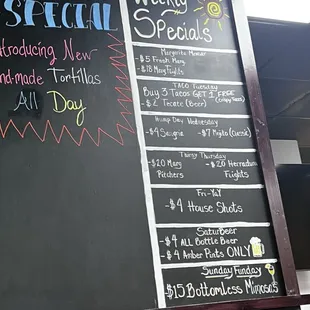 SPECIAL
Introducing New
Hand-made Tortillas
All Day
Weekly
Specials
Margarita Monday
-$5 Fresh Marg
-$18 Marg Flights
TACO Tuesday
Buy 3 Tacos GET 1 FREE
-$2 Tecate (Beer) (Crispy Tacos)
Hump Day Wednesday
-$4 Sangria -$7 Mojito (Classic)
Thirsty Thursday
-$20 Marg -$20 Herradura
Pitchers Flights
Fri-YaY
-$4 House Shots
SaturBeer
-$4 ALL Bottle Beer
-$4 Amber Pints ONLY
Sunday Funday
-$15 Bottomless Mimosa's